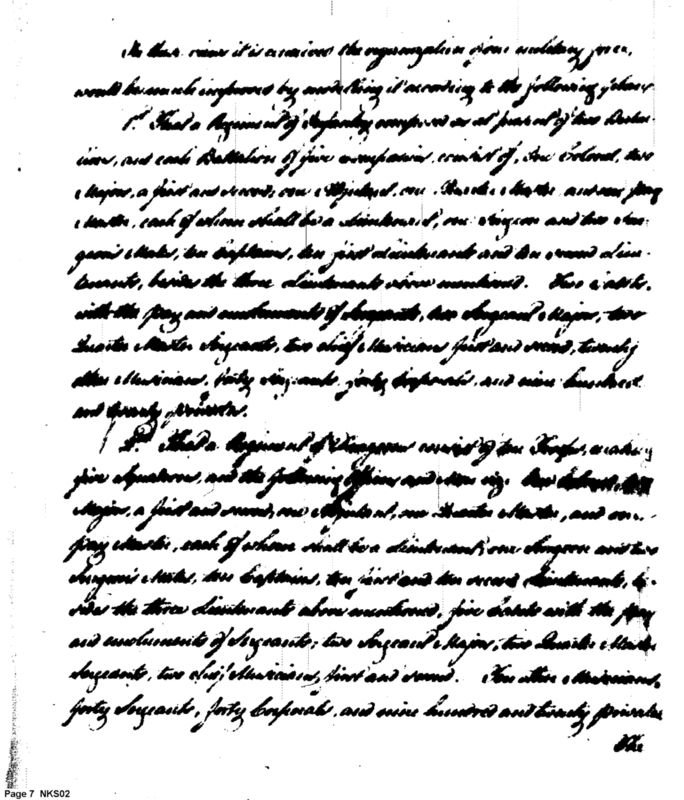 In this view it is conceived the organization of our military force,
would be much improved by modelling it according to the following scheme
1st. That a Regiment of Infantry composed as at present of two Battal-
ions, and each Battalion of five companies, consist of, One Colonel, two
Majors, a first and second, one Adjutant, one Quarter Master and one pay
Master, each of whom shall be a Lieutenant, one Surgeon and two Sur-
geon's Mates, ten Captains, ten first Lieutenants and ten second Lieu-
tenants, besides the three Lieutenants above mentioned. Two Cadets,
with the pay and emoluments of Sergeants, two Sergeant Majors, two
Quarter Master Sergeants, two chief Musicians first and second, twenty
other Musicians, forty Sergeants, forty Corporals, and nine hundred
and twenty privates.
2nd. That a Regiment of Dragoons consist of ten Troops, making
five Squadrons, and the following Officers and Men viz. One Colonel, two
Majors, a first and second, one Adjutant, one Quarter Master, and one
pay Master, each of whom shall be a Lieutenant; one Surgeon and two
Surgeon's Mates, ten Captains, ten first and ten second Lieutenants, be-
sides the three Lieutenants above mentioned, five Cadets with the pay
and emoluments of Sergeants; two Sergeant Majors, two Quarter Master
Sergeants, two chief Musicians, first and second. Ten other Musicians,
forty Sergeants, forty Corporals, and nine hundred and twenty privates
The
Page 7 NKS02